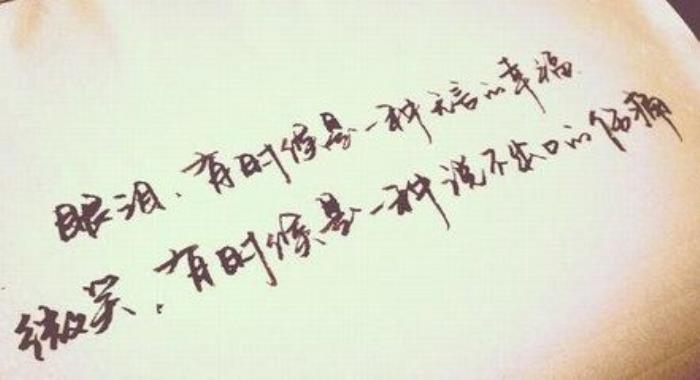 眼泪、有时候是一种无言的幸福
微笑、有时候是一种说不出口的伤痛